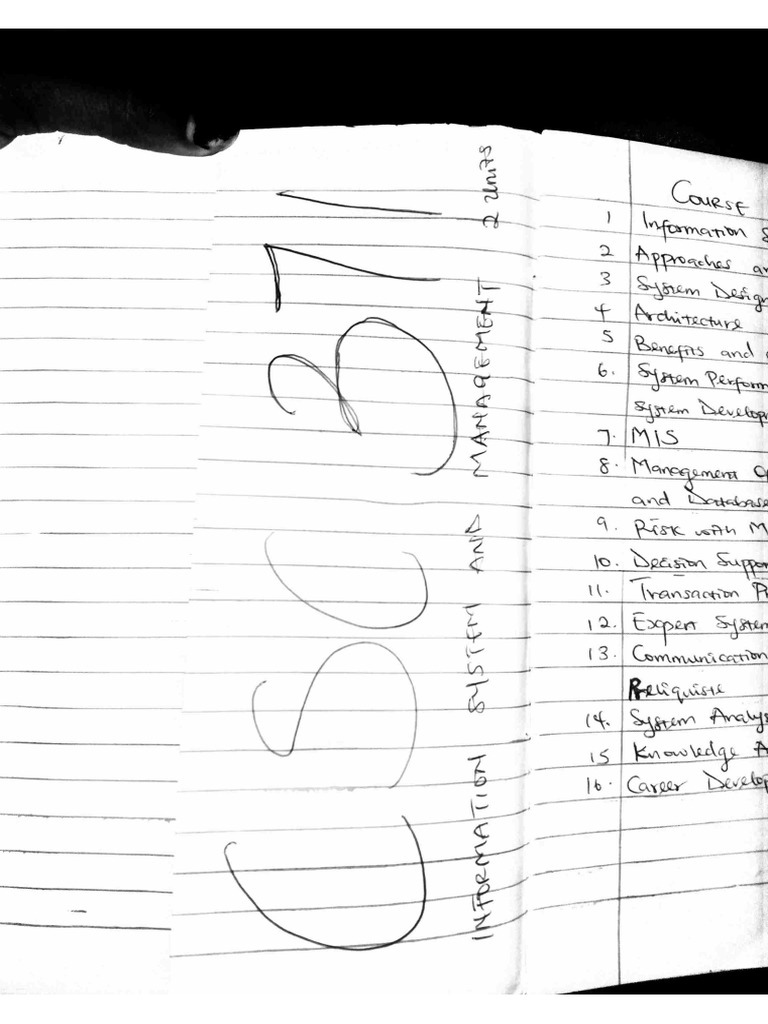 CSC 371
INFORMATION SYSTEM AND MANAGEMENT
2 Units
COURSE
1 Information S
2 Approaches an
3 System Design
4 Architecture
5 Benefits and
6. System Perform
System Develop
7. MIS
8. Management
and Database
9. Risk with M
10. Decision Suppor
11. Transaction Pr
12. Expert System
13. Communication
Reliquiste
14. System Analys
15 Knowledge A
16. Career Develop